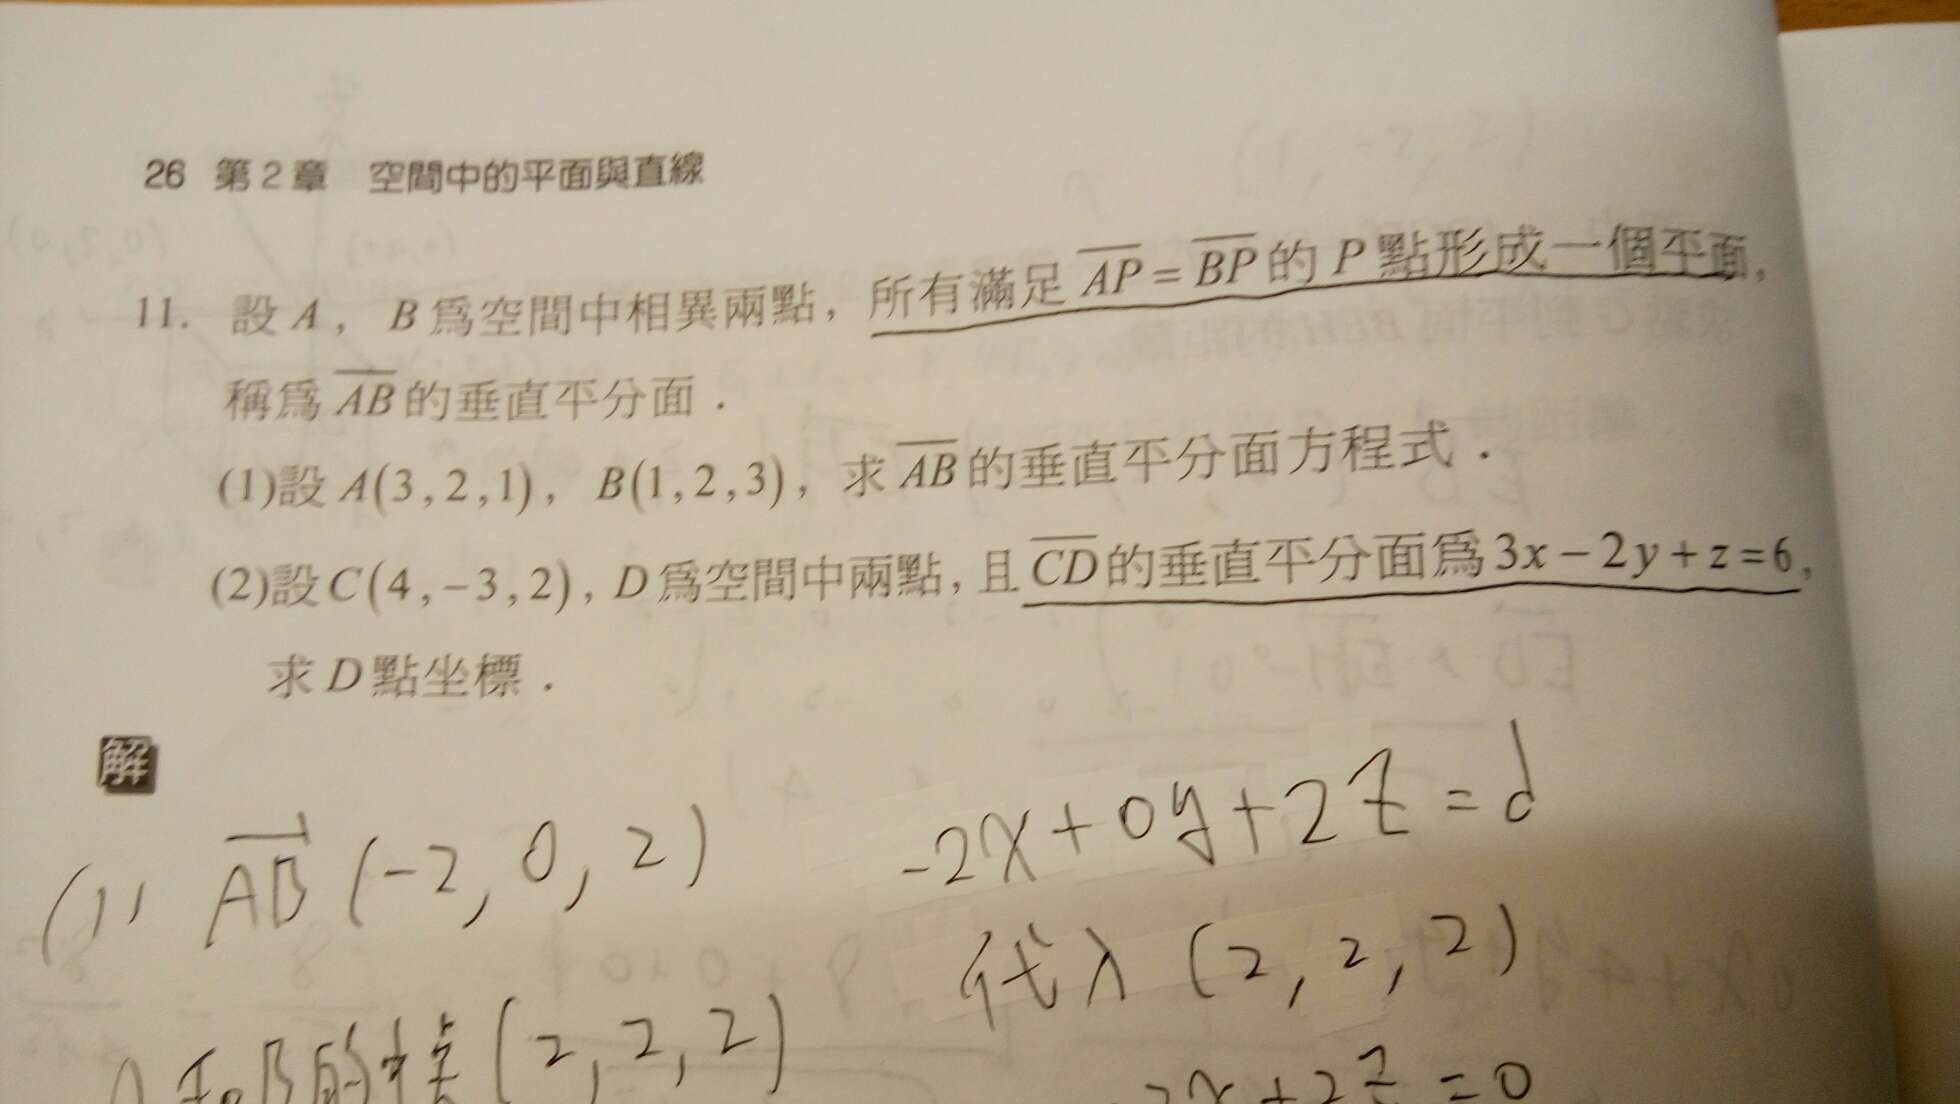 26 第2章 空間中的平面與直線
11. 設A，B為空間中相異兩點，所有滿足AP=BP的P點形成一個平面，
稱為AB的垂直平分面．
(1)設A(3,2,1)，B(1,2,3)，求AB的垂直平分面方程式．
(2)設C(4,-3,2)，D為空間中兩點，且CD的垂直平分面為3x-2y+z=6，
求D點坐標．
解
(1) AB (-2, 0, 2)
-2x+0y+2z=d
代入 (2, 2, 2)
(2, 2, 2)
2x+2z=0